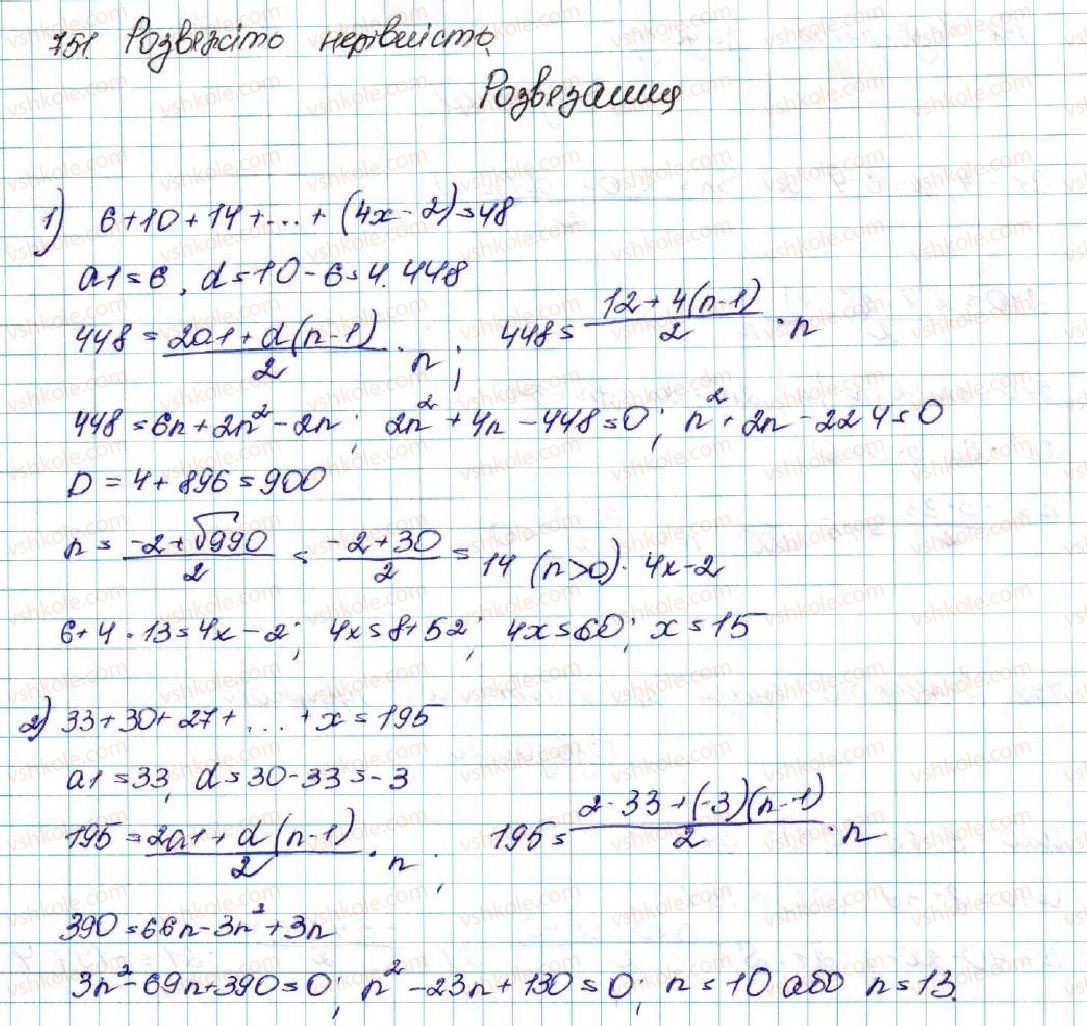 751. Розвяжіть нерівність
Розвязання
1) 6+10+14+...+(4x-2)=48
a1=6, d=10-6=4. 448
448 = (2a1+d(n-1))/2 · n; 448 = (12+4(n-1))/2 · n
448=6n+2n²-2n; 2n²+4n-448=0; n²+2n-224=0
D=4+896=900
n = (-2+√990)/2 = (-2+30)/2 = 14 (n>0). 4x-2
6+4·13=4x-2; 4x=8+52; 4x=60; x=15
2) 33+30+27+...+x=195
a1=33, d=30-33=-3
195 = (2a1+d(n-1))/2 · n; 195 = (2·33+(-3)(n-1))/2 · n
390=66n-3n²+3n
3n²-69n+390=0; n²-23n+130=0; n=10 або n=13.